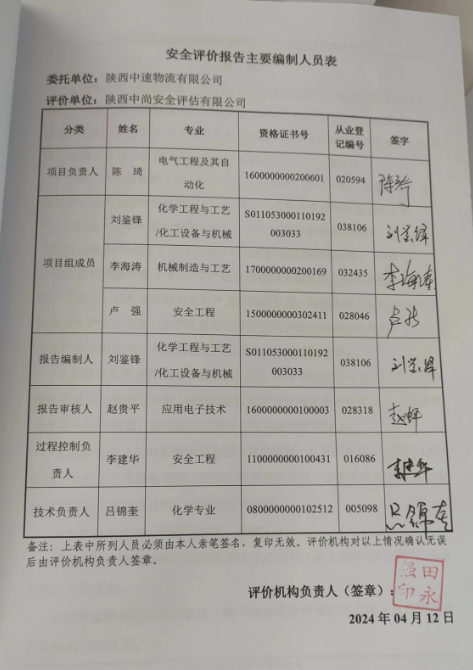 安全评价报告主要编制人员表
委托单位：陕西中速物流有限公司
评价单位：陕西中尚安全评估有限公司
分类 姓名 专业 资格证书号 从业登记编号 签字
项目负责人 陈 琦 电气工程及其自动化 1600000000200601 020594 陈琦
项目组成员 刘鉴锋 化学工程与工艺/化工设备与机械 S011053000110192003033 038106 刘鉴锋
李海涛 机械制造与工艺 1700000000200169 032435 李海涛
卢 强 安全工程 1500000000302411 028046 卢强
报告编制人 刘鉴锋 化学工程与工艺/化工设备与机械 S011053000110192003033 038106 刘鉴锋
报告审核人 赵贵平 应用电子技术 1600000000100003 028318
过程控制负责人 李建华 安全工程 1100000000100431 016086 李建华
技术负责人 吕锦奎 化学专业 0800000000102512 005098 吕锦奎
备注：上表中所列人员必须由本人亲笔签名，复印无效。评价机构对以上情况确认无误
后由评价机构负责人签章。
评价机构负责人（签章）：
田永强印
2024 年 04 月 12 日